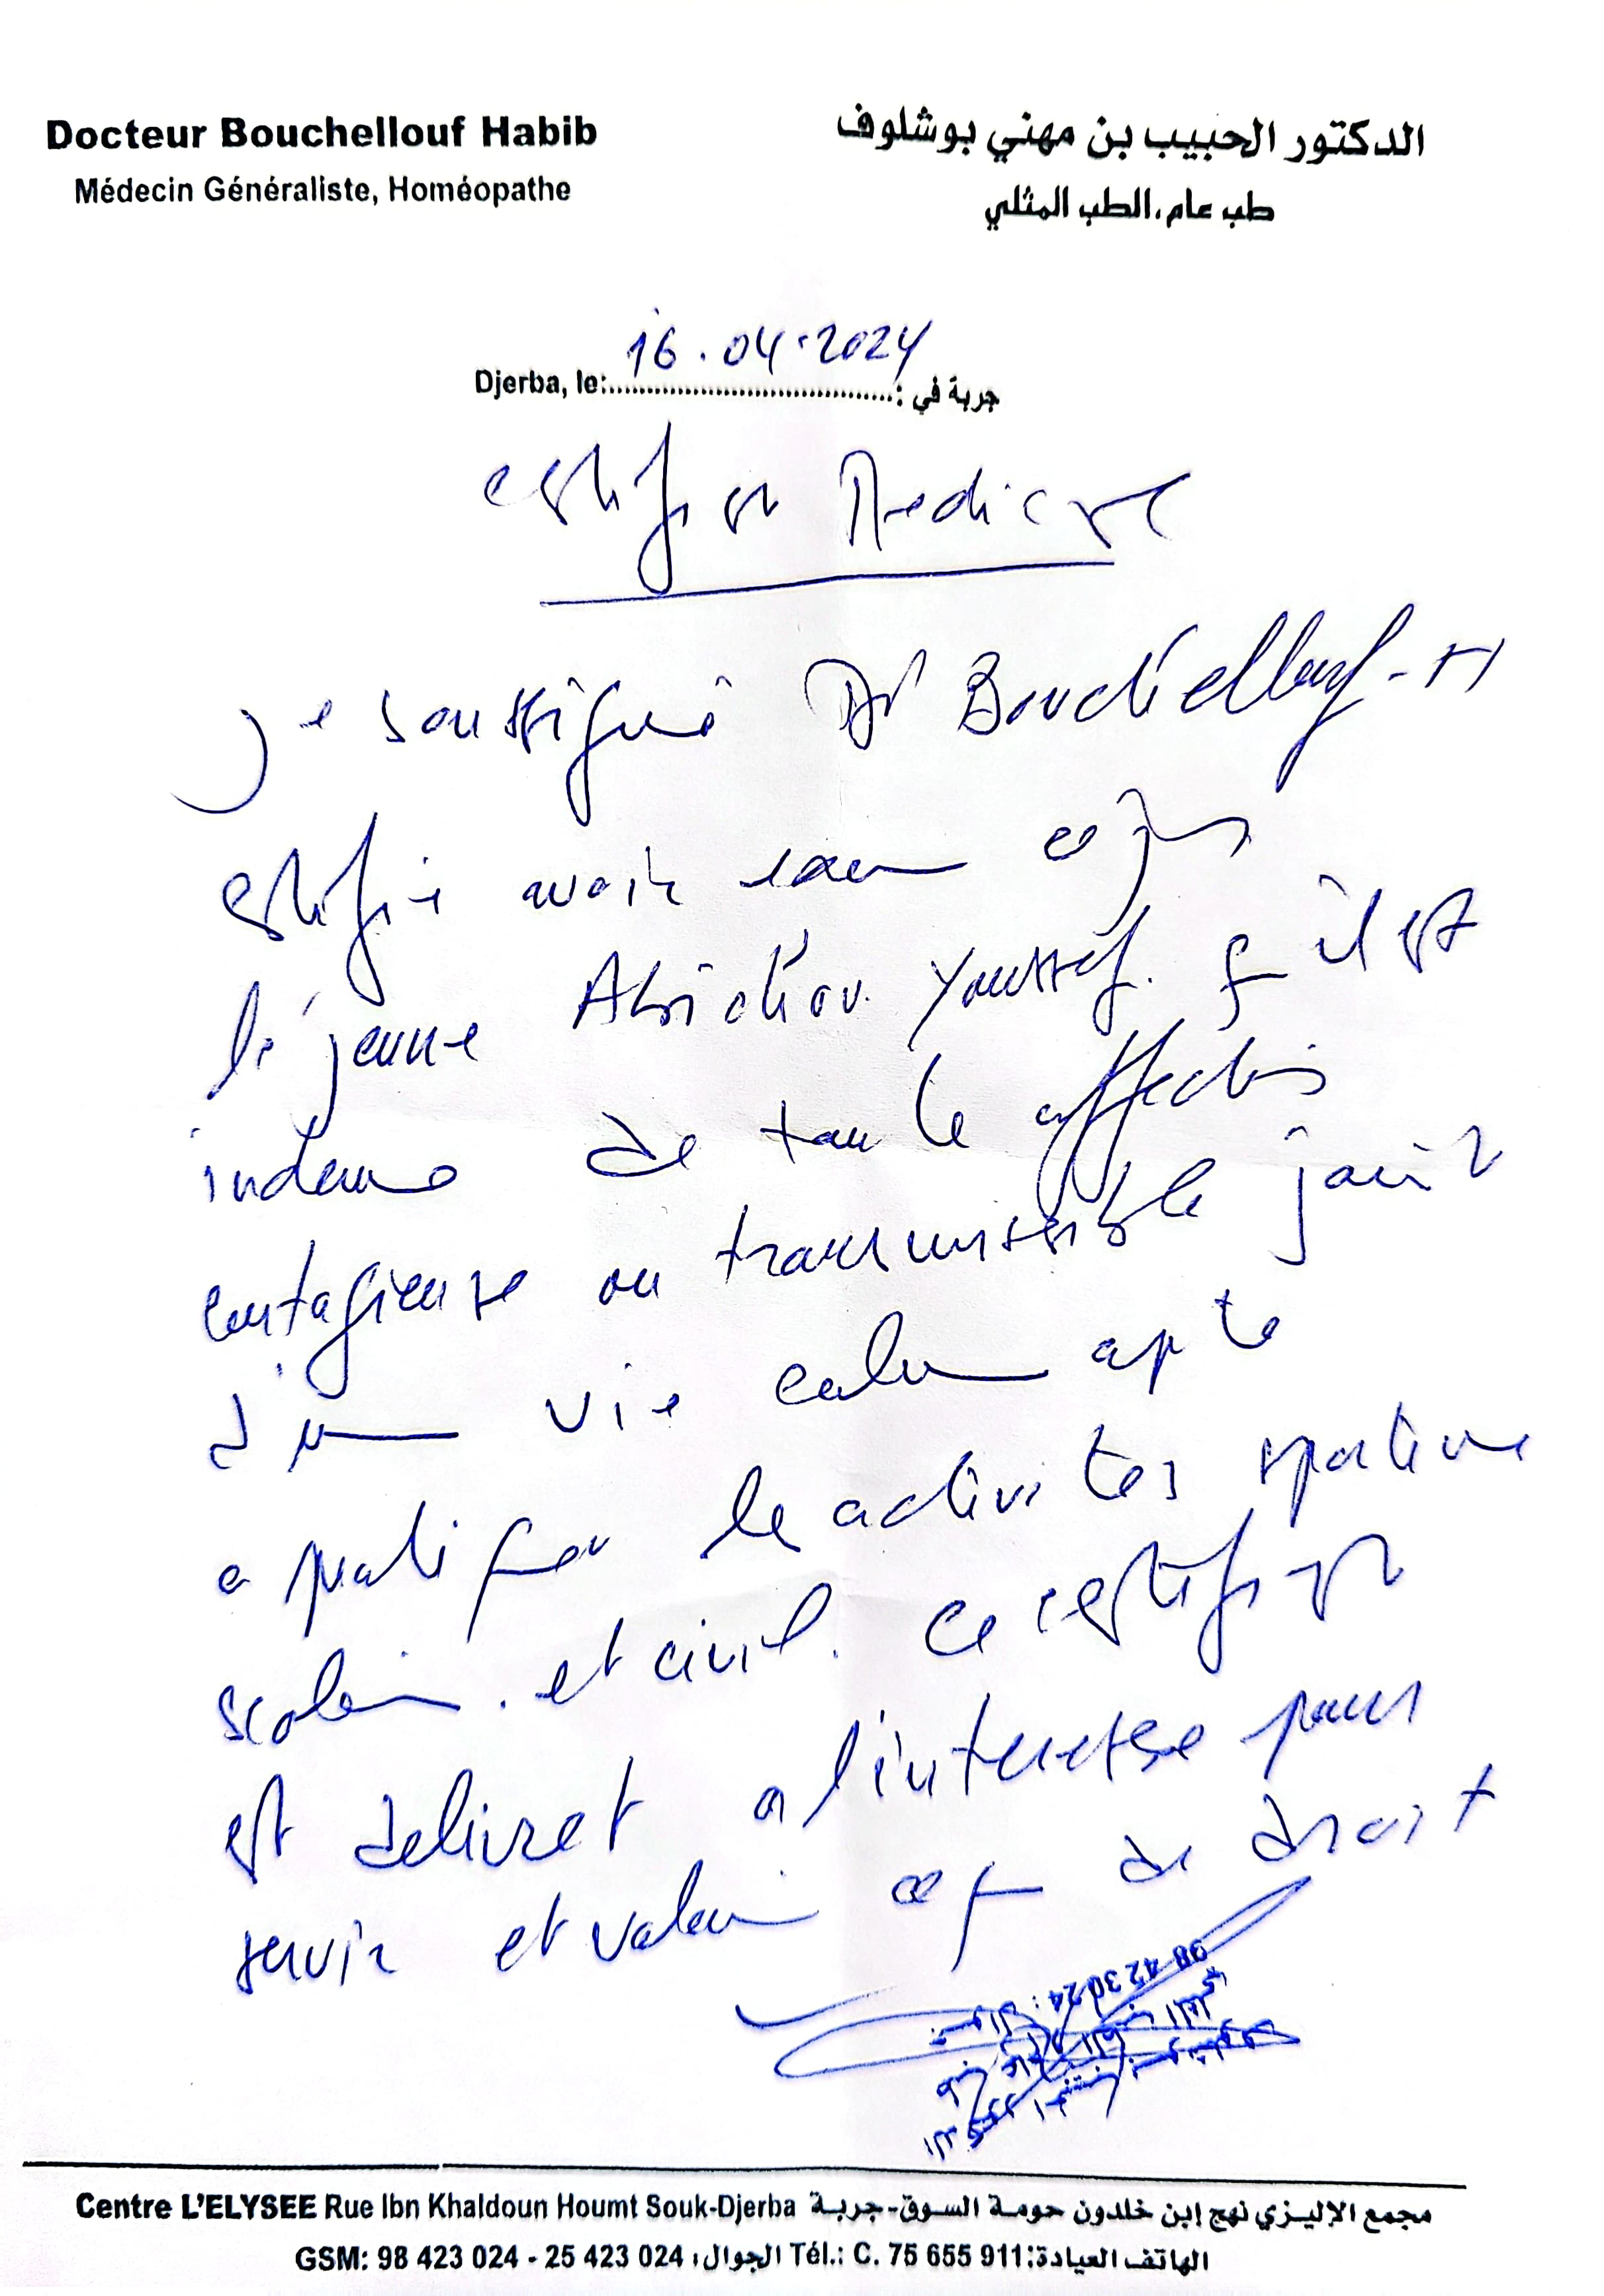 Docteur Bouchellouf Habib
Médecin Généraliste, Homéopathe
الدكتور الحبيب بن مهني بوشلوف
طب عام، الطب المثلي
Djerba, le: 16.04.2024 جربة في :
certificat Medicale
Je soussigné Dr Bouchellouf-H
certifie avoir exam ce jour
le jeune Youssef. qu'il est
indemne de toute affection
contagieuse ou transmissible jouit
d'une vie calme apte
a pratiquer les activités sportive
scolaire. et civil. Ce certificat
est delivret a l'interesse pour
servir et valoir ce que de droit
98 423024 :
Centre L'ELYSEE Rue Ibn Khaldoun Houmt Souk-Djerba مجمع الإليـزي نهج إبن خلدون حومـة السـوق-جربـة
GSM: 98 423 024 - 25 423 024 الجوال، Tél.: C. 75 655 911 الهاتف العيادة: